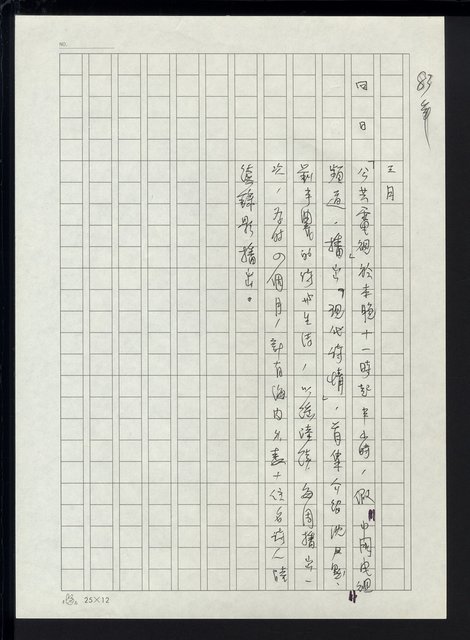 83年
月
四日 「公共電視」於本晚十一時起半小時,假中國電視
頻道,播出「現代詩情」,首集介紹
的詩生活,以後陸續每周播出一
次,為時四個月,計有海內外十位名詩人陸
續錄影播出。
NO.
25×12